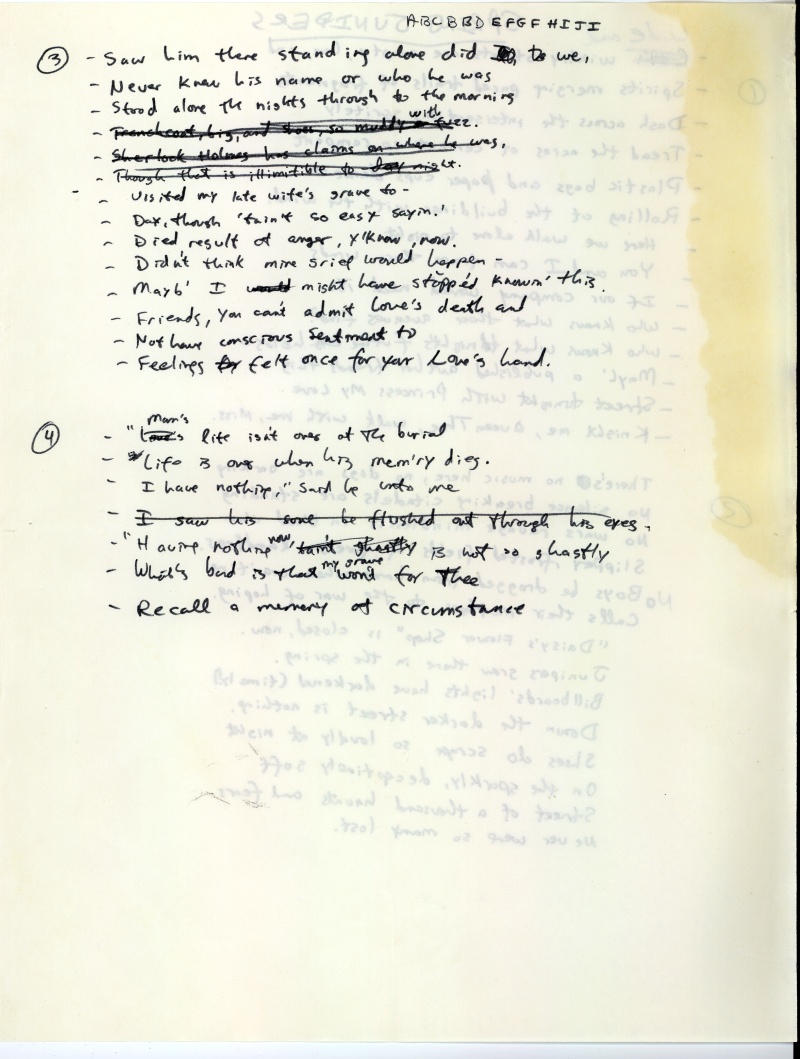 ABCBBDEFGFHIJI
③ - Saw him there standing alone did to we,
- Never knew his name or who he was
- Stood alone the nights through to the morning
- Trenchcoat, big, and shoes, so muddy with fuzz.
- Sherlock Holmes has claims on where he was,
- Though that is illimitible to day might.
- Visited my late wife's grave to -
- Day, though 'tain't so easy sayin'.
- Died result of anger, y'know, now.
- Didn't think more grief would happen -
- Mayb' I would might have stopped knowin' this.
- Friends, you can't admit love's death and
- Not have conscious sentiment to
- Feelings felt once for your Love's hand.
④ - "Love's Man's life isn't over at the burial
- Life is over when his mem'ry dies.
- I have nothing," said he unto me
- I saw his some be flushed out through his eyes.
- "Having nothing now 'taint ghastly is not so ghastly
- What's bad is that my grave won't for Thee
- Recall a memory of circumstance